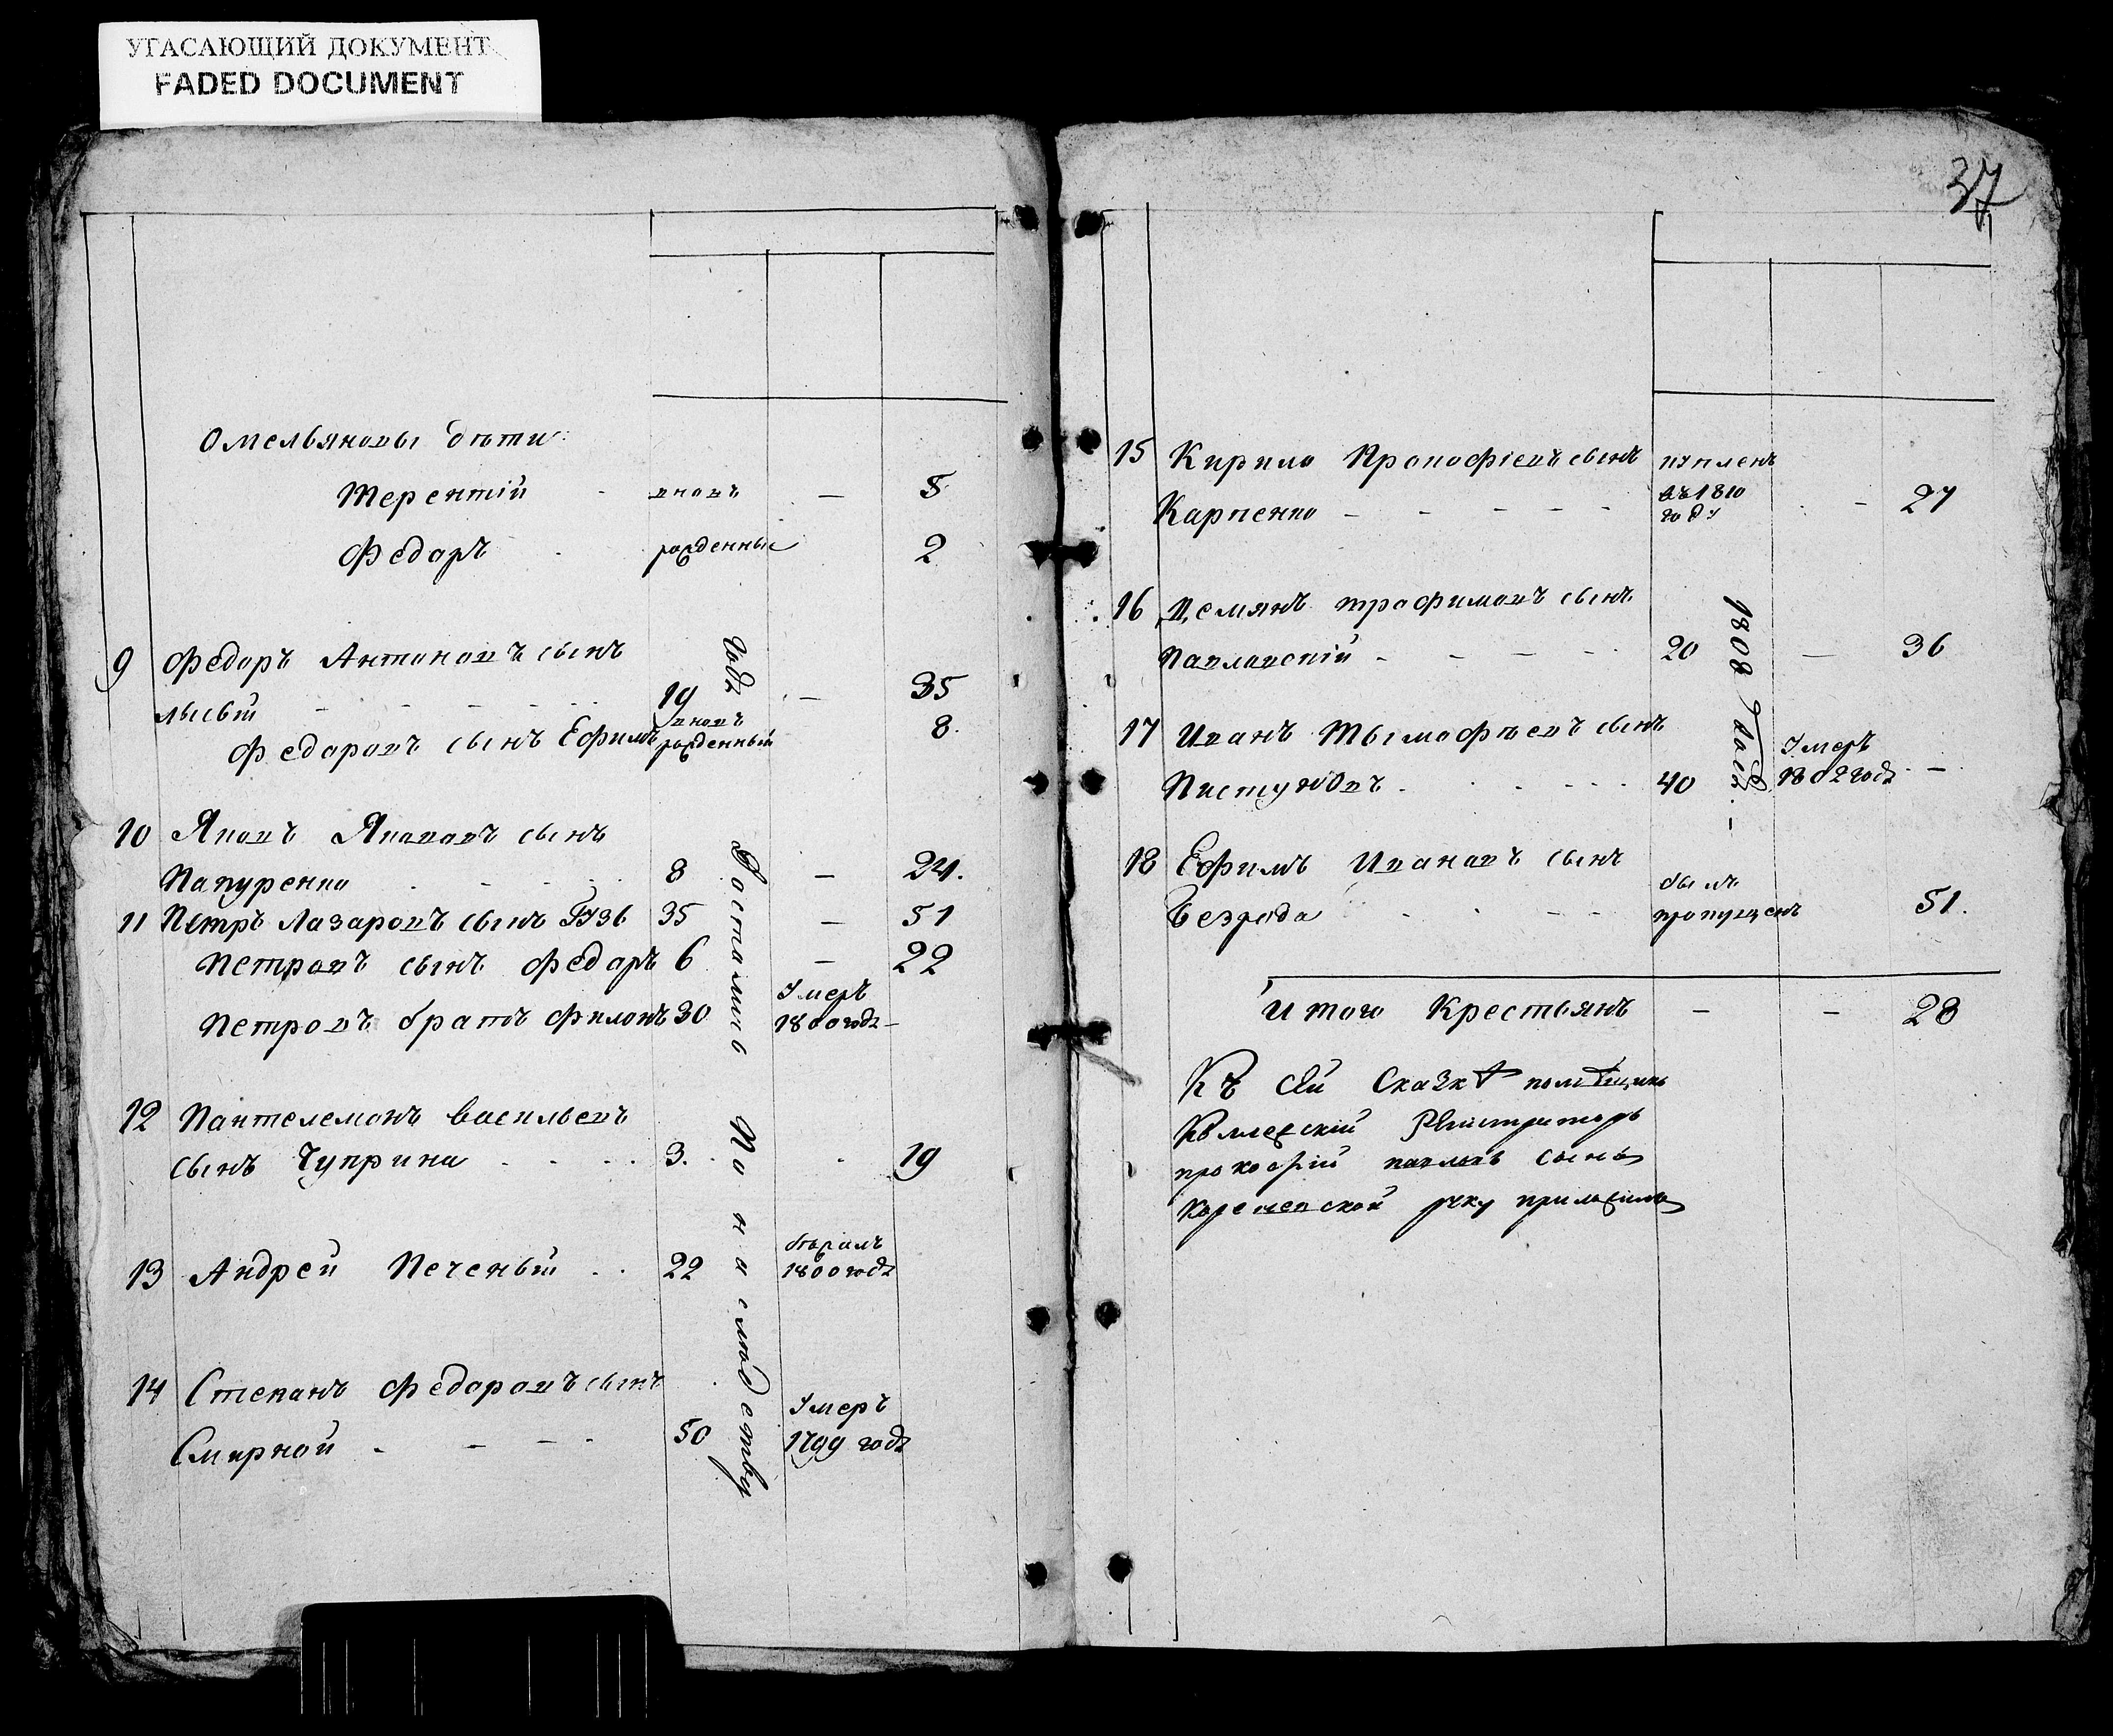 УГАСАЮЩИЙ ДОКУМЕНТ
FADED DOCUMENT
Омельяновы дѣти
Терентій вновь — 5
Федоръ рожденные 2
9 Федоръ Антоновъ сынъ
лысый 19 — 35
Федоровъ сынъ Ефимъ вновь рожденный 8.
10 Яковъ Якововъ сынъ
Папуренко 8 — 24.
11 Петръ Лазаровъ сынъ 35 — 51
Петровъ сынъ Федоръ 6 — 22
Петровъ братъ Филонъ 30 Умеръ 1800 годѣ —
12 Пантелемонъ васильевъ
сынъ Чуприна 3. 19
13 Андрей Печеный 22 бѣжалъ 1800 годѣ
14 Степанъ Федоровъ сынъ
Смирной 50 Умеръ 1799 годѣ
Досталис По наслюдству
годѣ
37
15 Кирило Прокофіевъ сынъ купленъ
Карпенко — въ 1810 году — 27
16 Демянъ трофимовъ сынъ
Павловскій 20 — 36
17 Иванъ Тымофѣевъ сынъ
Пистуновъ 40 Умеръ 1802 годѣ —
1808 Годѣ. —
18 Ефимъ Ивановъ сынъ
Безрода былъ пропущенъ 51.
Итого Крестьянъ — — 28
Къ сей Сказкѣ помѣщикъ
Колежскій Регистраторъ
прокофій павловъ сынъ
руку приложилъ